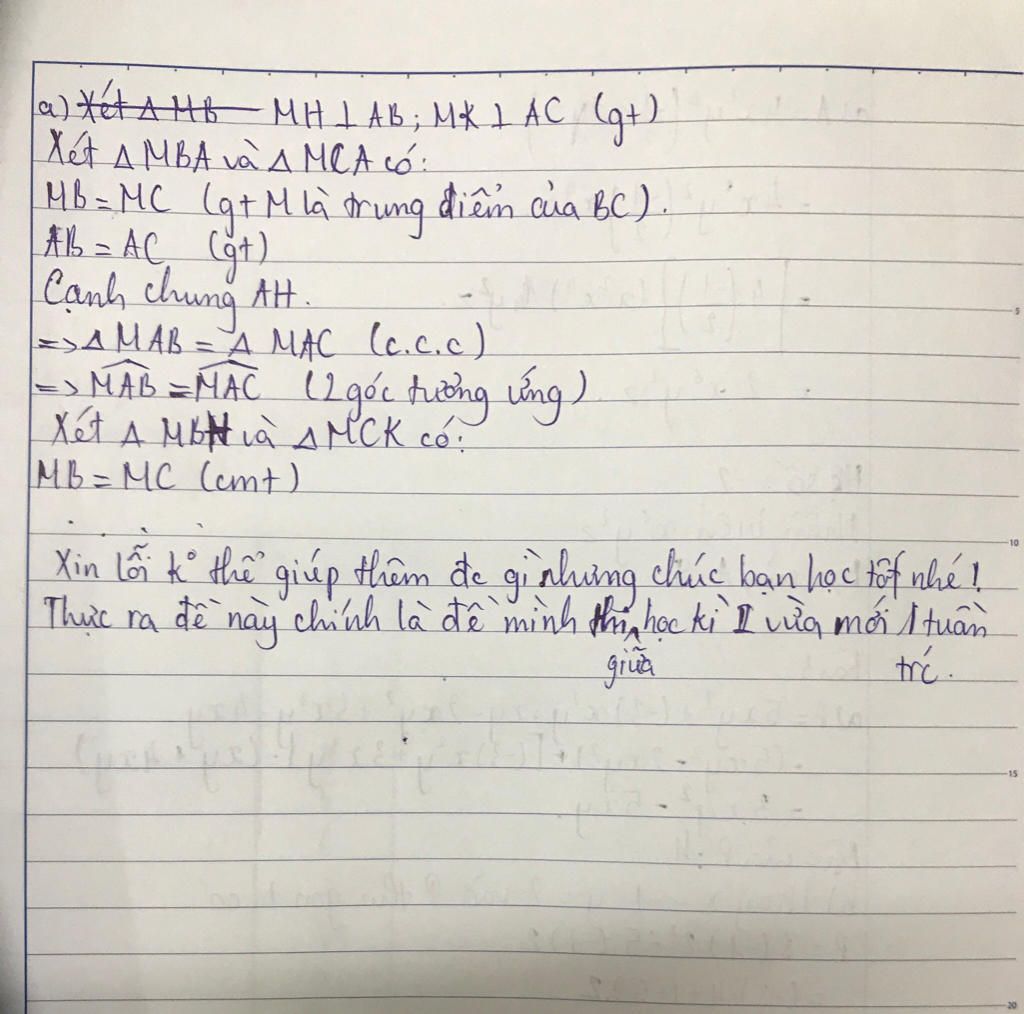 a) Xét Δ MB MH ⊥ AB; MK ⊥ AC (gt)
Xét Δ MBA và Δ MCA có:
MB = MC (gt M là trung điểm của BC).
AB = AC (gt)
Cạnh chung AH.
=> Δ MAB = Δ MAC (c.c.c)
=> MAB = MAC (2 góc tương ứng)
Xét Δ MBH và Δ MCK có:
MB = MC (cmt)
Xin lỗi k° thể giúp thêm đc gì nhưng chúc bạn học tốt nhé!
Thực ra đề này chính là đề mình thi giữa học kì II vừa mới 1 tuần
trc.
5
10
15
20